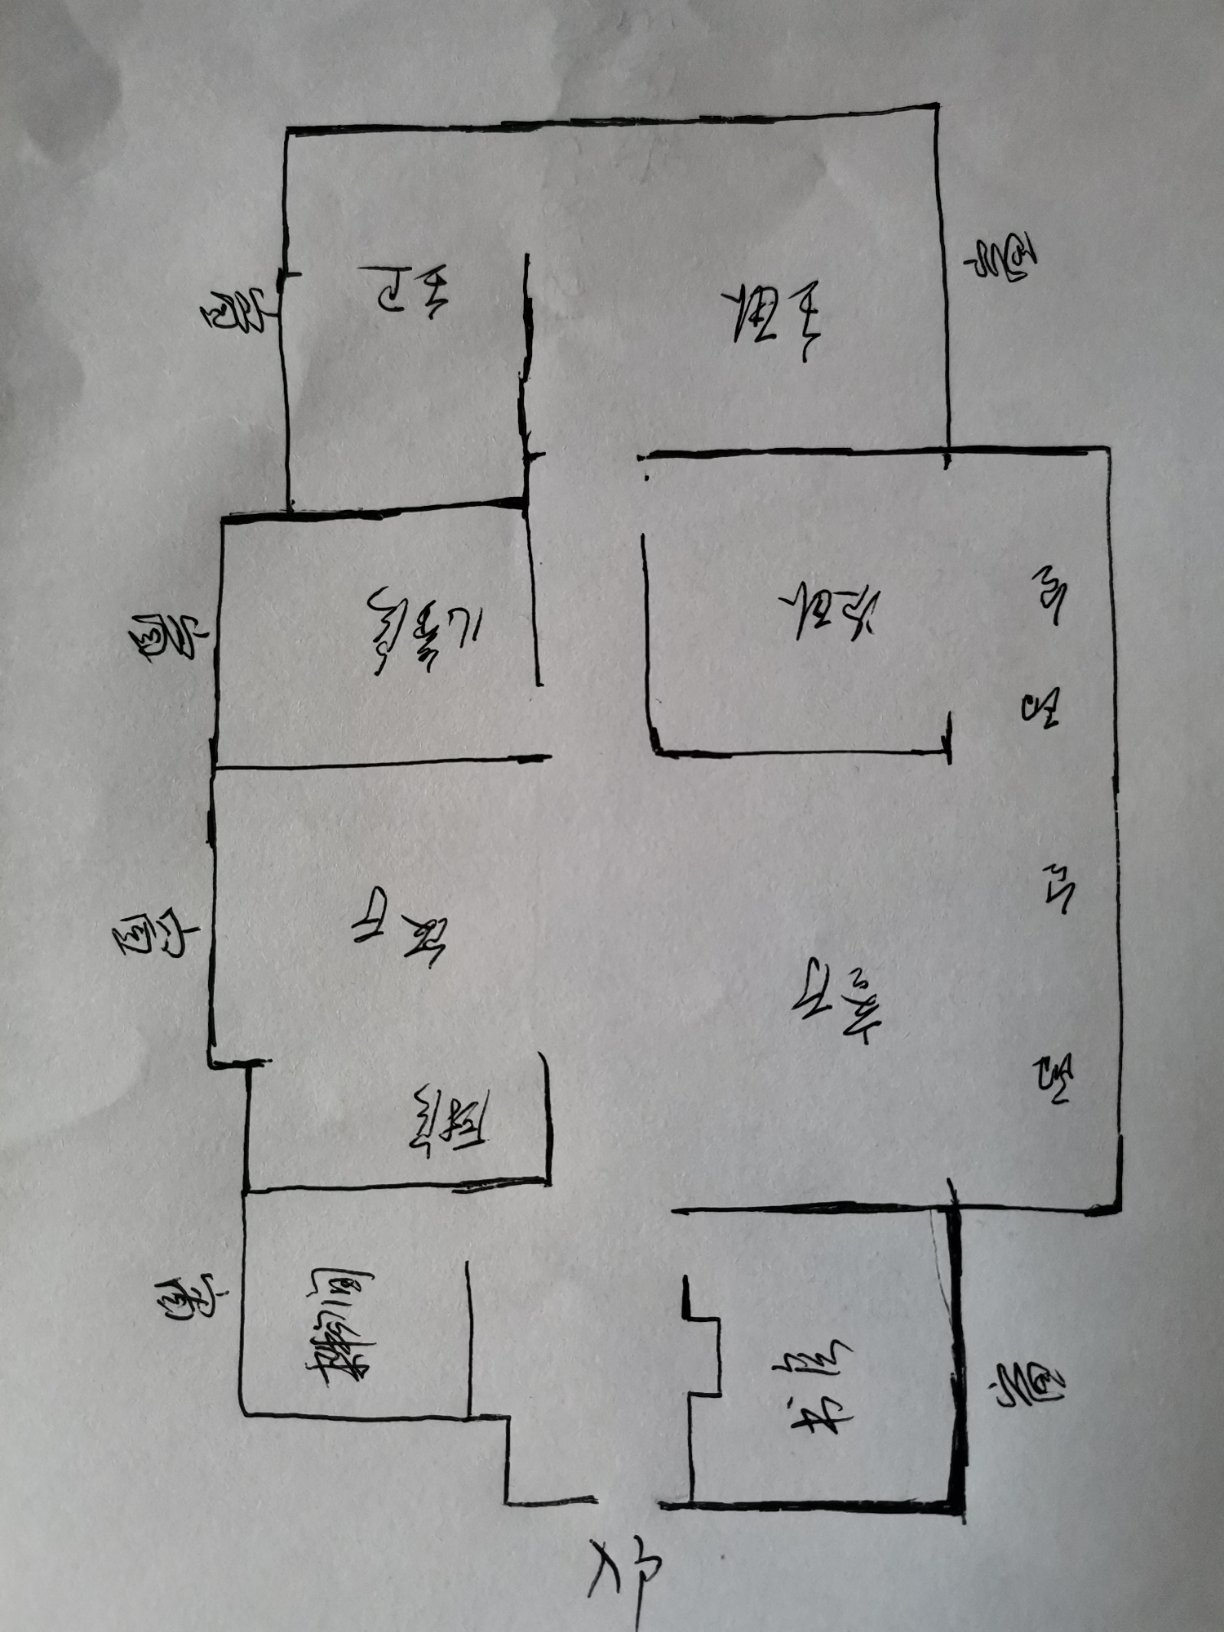 主卫
主卧
窗
窗
儿童房
次卧
窗
餐厅
客厅
窗
厨房
阳
台
窗
书房
窗
入户